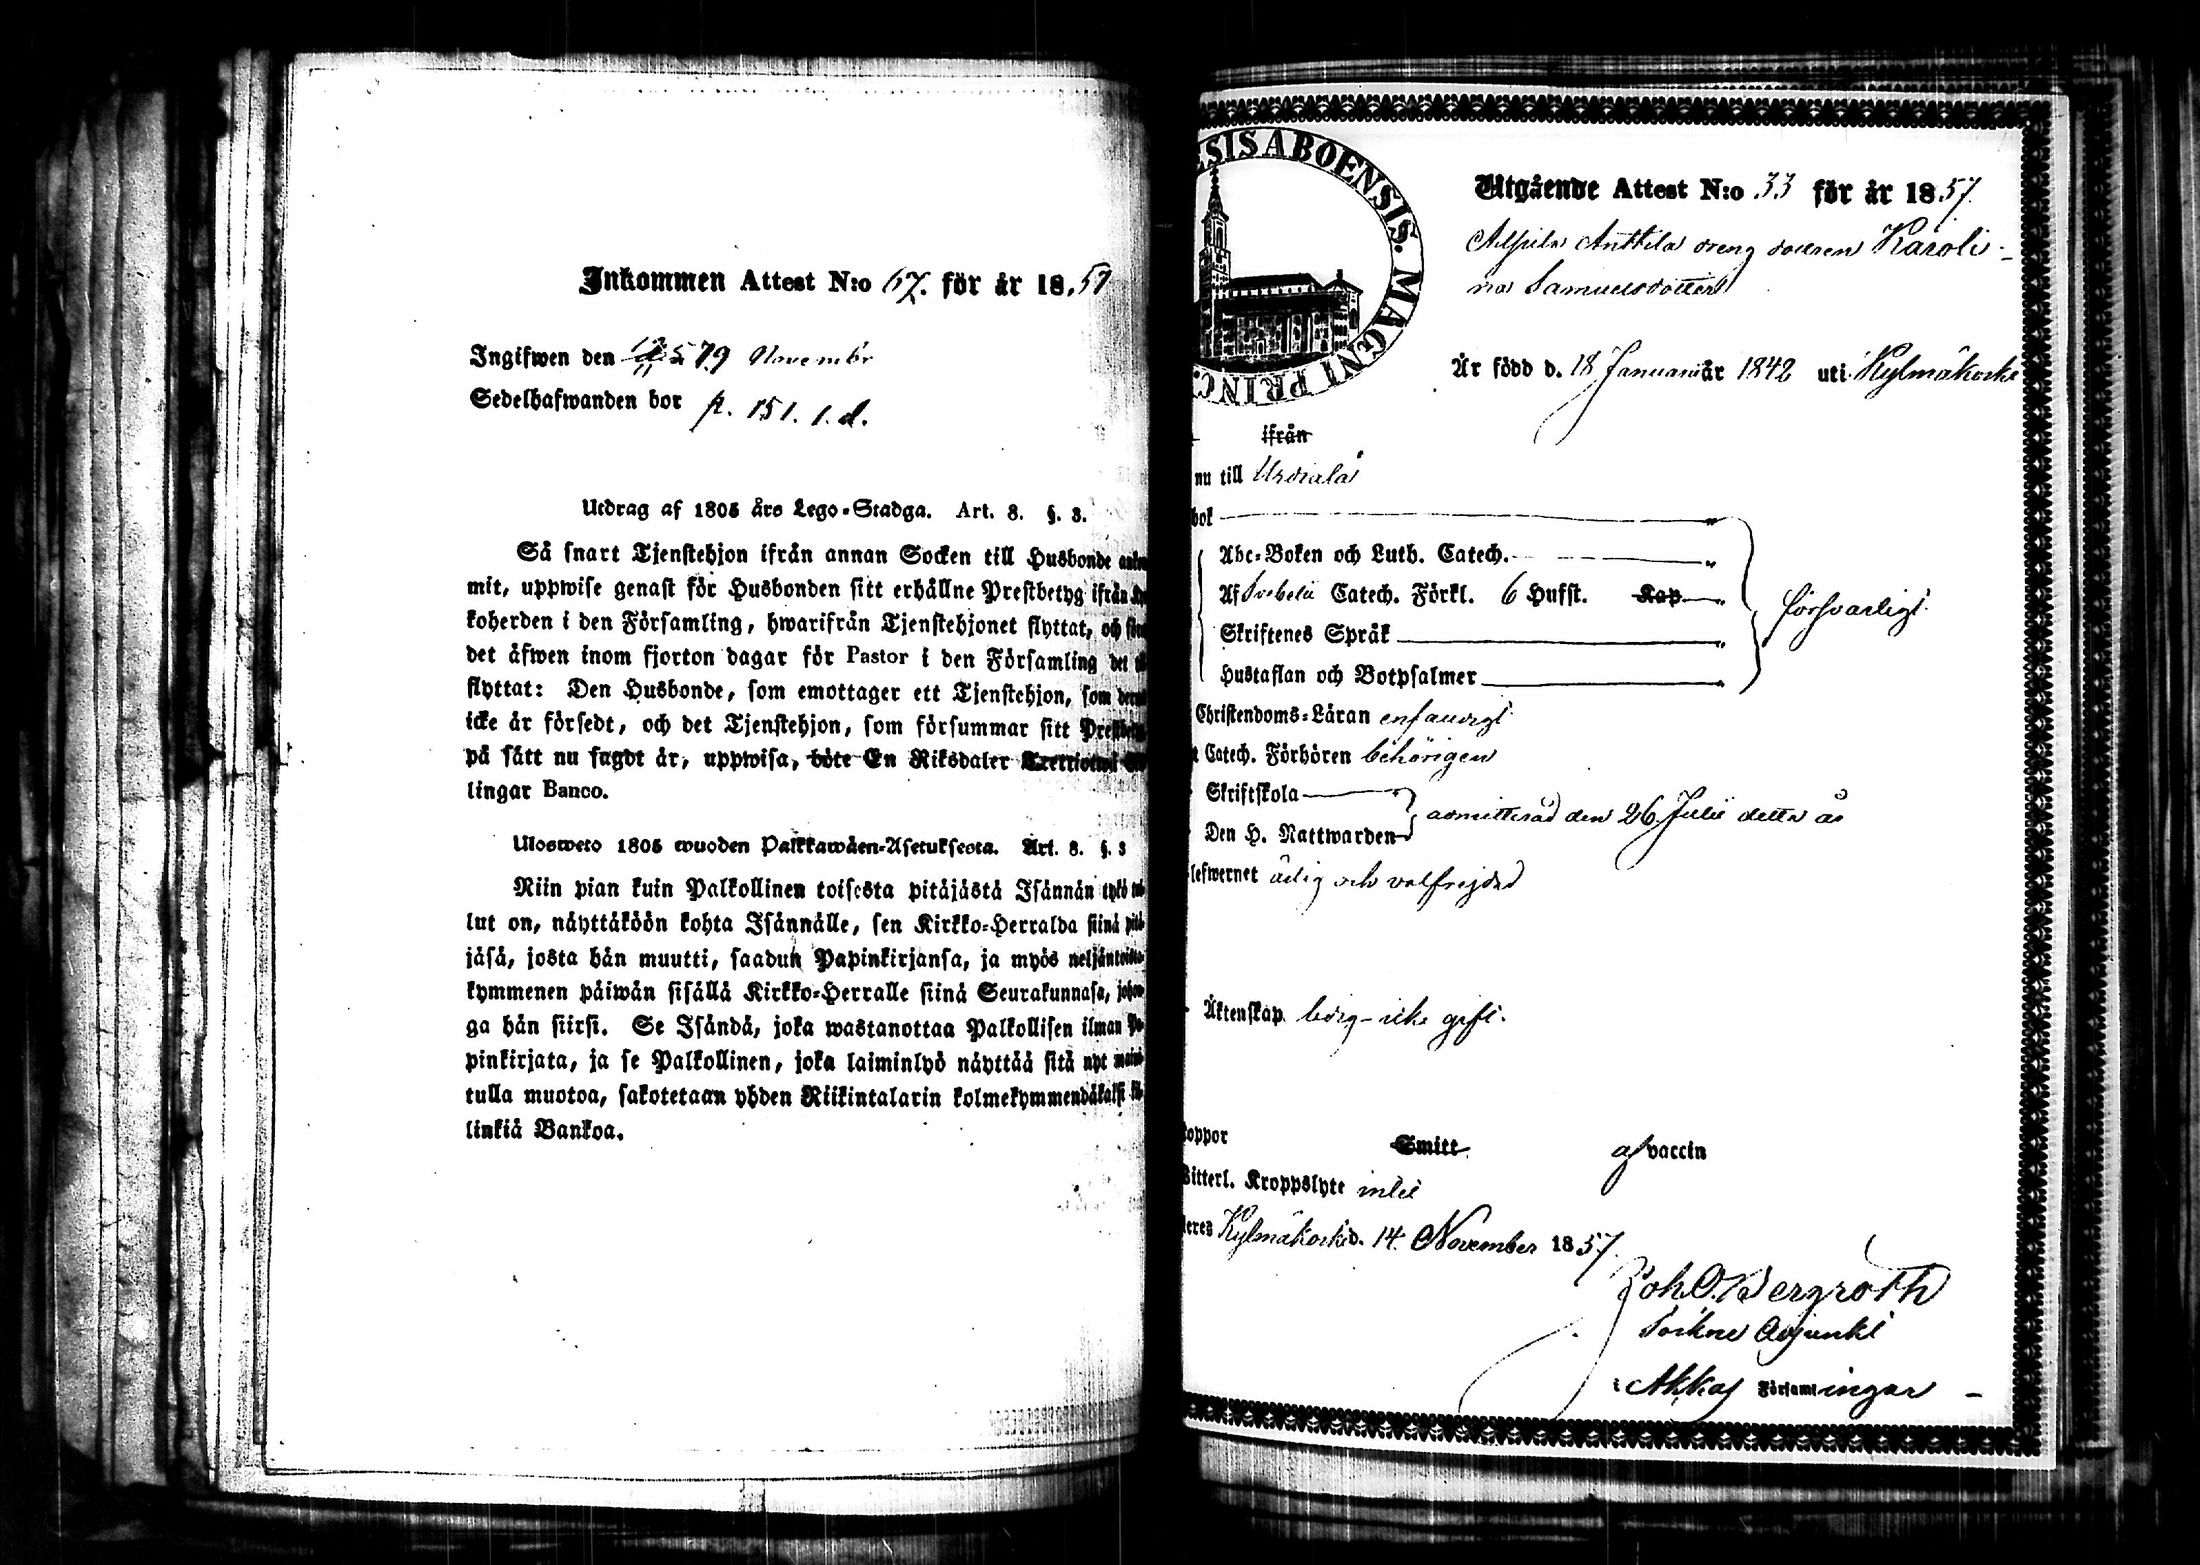 Inkommen Attest N:o 67. för år 1857
Ingifwen den 19 Novembr
Sedelhafwanden bor p. 151. 1. d.
Utdrag af 1805 års Lego-Stadga. Art. 8. §. 3.
Så snart Tjenstehjon ifrån annan Socken till Husbonde
mit, uppwise genast för Husbonden sitt erhållne Prestbetyg ifrån
koherden i den Församling, hwarifrån Tjenstehjonet flyttat, och
det äfwen inom fjorton dagar för Pastor i den Församling det
flyttat: Den Husbonde, som emottager ett Tjenstehjon, som
icke är försedt, och det Tjenstehjon, som försummar sitt
på sätt nu sagdt är, uppwisa, böte En Riksdaler
lingar Banco.
Ulosweto 1805 wuoden Palkkawäen-Asetuksesta. Art. 8. §. 3
Niin pian kuin Palkollinen toisesta pitäjästä Isännän tykö
lut on, näyttäköön kohta Isännälle, sen Kirkko-Herralda siinä
jäsä, josta hän muutti, saadun Papinkirjansa, ja myös neljäntoista-
kymmenen päiwän sisällä Kirkko-Herralle siinä Seurakunnasa,
ga hän siirsi. Se Isändä, joka wastanottaa Palkollisen ilman
pinkirjata, ja se Palkollinen, joka laiminlyö näyttää sitä nyt
tulla muotoa, sakotetaan yhden Riikintalarin kolmekymmendäkaksi
linkiä Bankoa.
ESIS ABOENSIS. MAGNI PRINC.
Utgående Attest N:o 33 för år 1857.
Anttila dreng Karoli-
na Samuelsdotter
Är född d. 18 Januari år 1842 uti Kylmäkoski
ifrån
nu till Urdiala
bok
Abc-Boken och Luth. Catech.
Af Svebelii Catech. Förkl. 6 Hufst. Kap
Skriftenes Språk
Hustaflan och Botpsalmer
försvarligt
Christendoms-Läran enfaldigt
Catech. Förhören behörigen
Skriftskola
Den H. Nattwarden
admitterad den 26 Julii detta år
lefwernet ärlig och välfrejdad
Äktenskap ledig - icke gift.
koppor Smitt af vaccin
Witterl. Kroppslyte intet
Kylmäkoski d. 14. November 1857.
Joh O. Bergroth
Sockne Adjunkt
i Akkas Församlingar